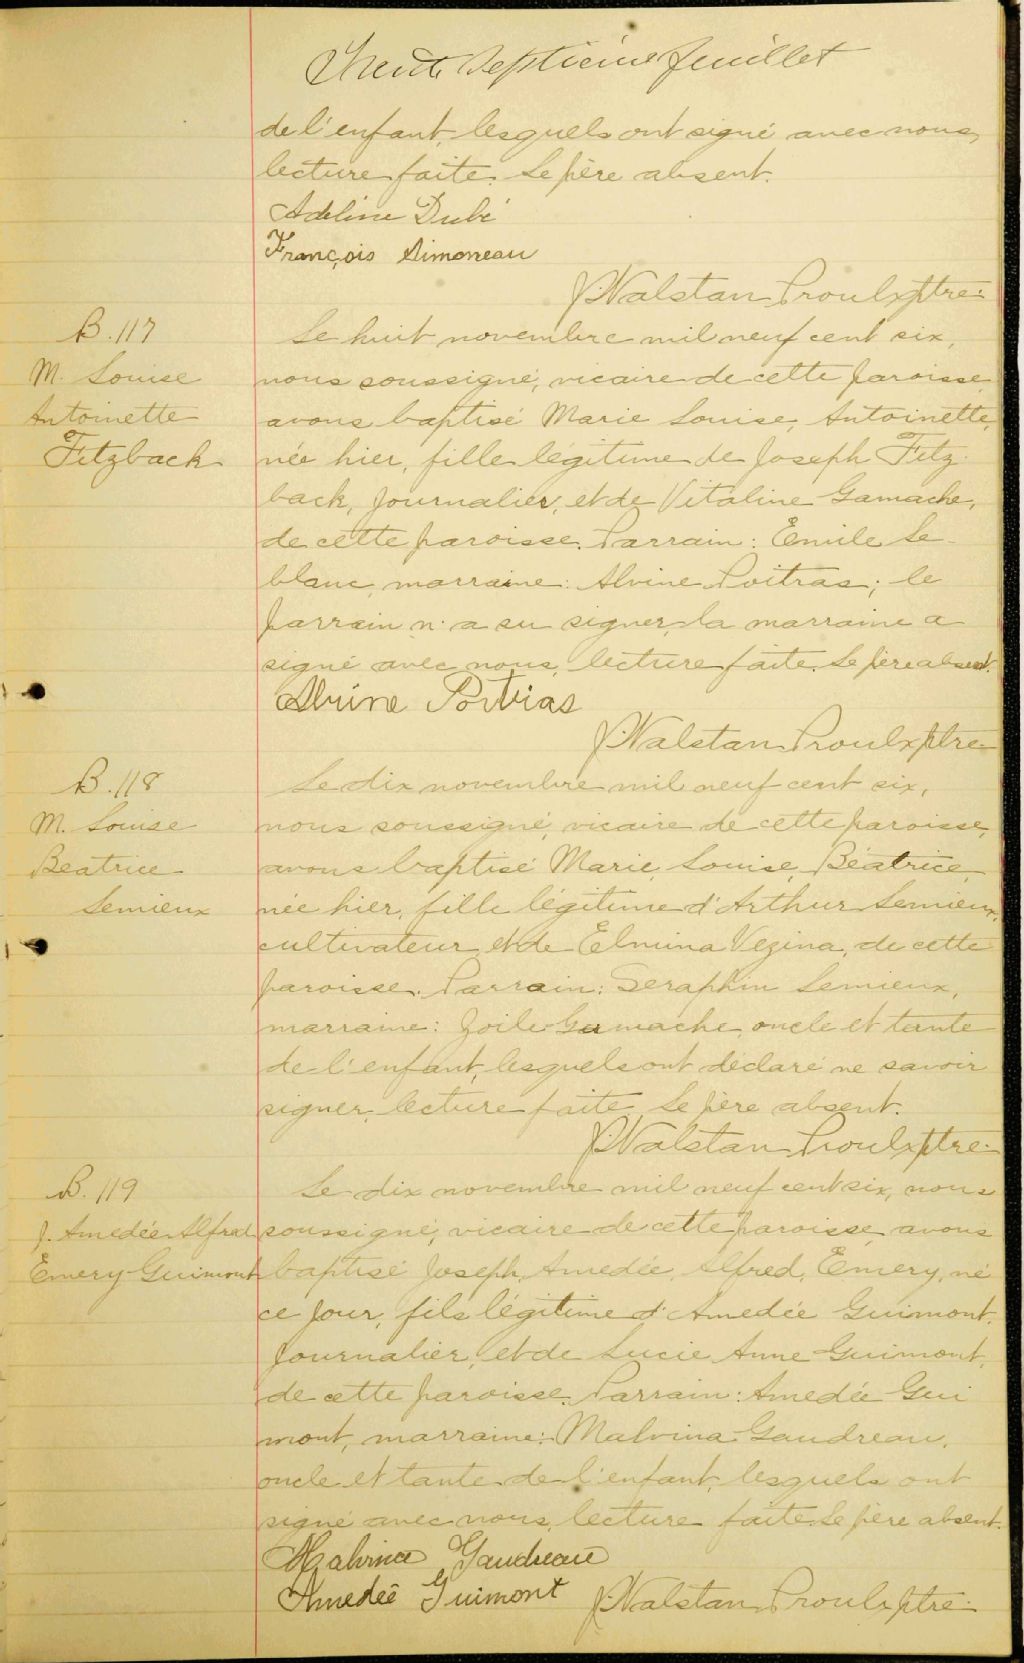 Trente Septieme feuillet
de l'enfant, lesquels ont signé avec nous,
lecture faite. Le père absent.
Adeline Dubé
François Simoneau
J. Nalstan Proulx ptre.
B. 117
M. Louise
Antoinette
Fitzback
Le huit novembre mil neuf cent six,
nous soussigné, vicaire de cette paroisse
avons baptisé Marie Louise, Antoinette,
née hier, fille légitime de Joseph Fitz
back, journalier, et de Vitaline Gamache,
de cette paroisse. Parrain: Emile Le-
blanc, marraine: Alvine Poitras; le
parrain n'a su signer, la marraine a
signé avec nous, lecture faite. Le père absent.
Alvine Poitras
J. Nalstan Proulx ptre.
B. 118
M. Louise
Beatrice
Lemieux
Le dix novembre mil neuf cent six,
nous soussigné, vicaire de cette paroisse,
avons baptisé Marie, Louise, Béatrice,
née hier, fille légitime d'Arthur Lemieux,
cultivateur et de Elmina Vezina, de cette
paroisse. Parrain: Seraphin Lemieux,
marraine: Zoile Gamache, oncle et tante
de l'enfant, lesquels ont déclaré ne savoir
signer, lecture faite. Le père absent.
J. Nalstan Proulx ptre.
B. 119
J. Amedée Alfred
Emery Guimont
Le dix novembre mil neuf cent six, nous
soussigné, vicaire de cette paroisse, avons
baptisé Joseph, Amedée, Alfred, Emery, né
ce jour, fils légitime d'Amedée Guimont,
journalier, et de Lucie Anne Guimont,
de cette paroisse. Parrain: Amedée Gui
mont, marraine: Malvina Gaudreau,
oncle et tante de l'enfant, lesquels ont
signé avec nous, lecture faite. Le père absent.
Malvina Gaudreau
Amedée Guimont
J. Nalstan Proulx ptre.